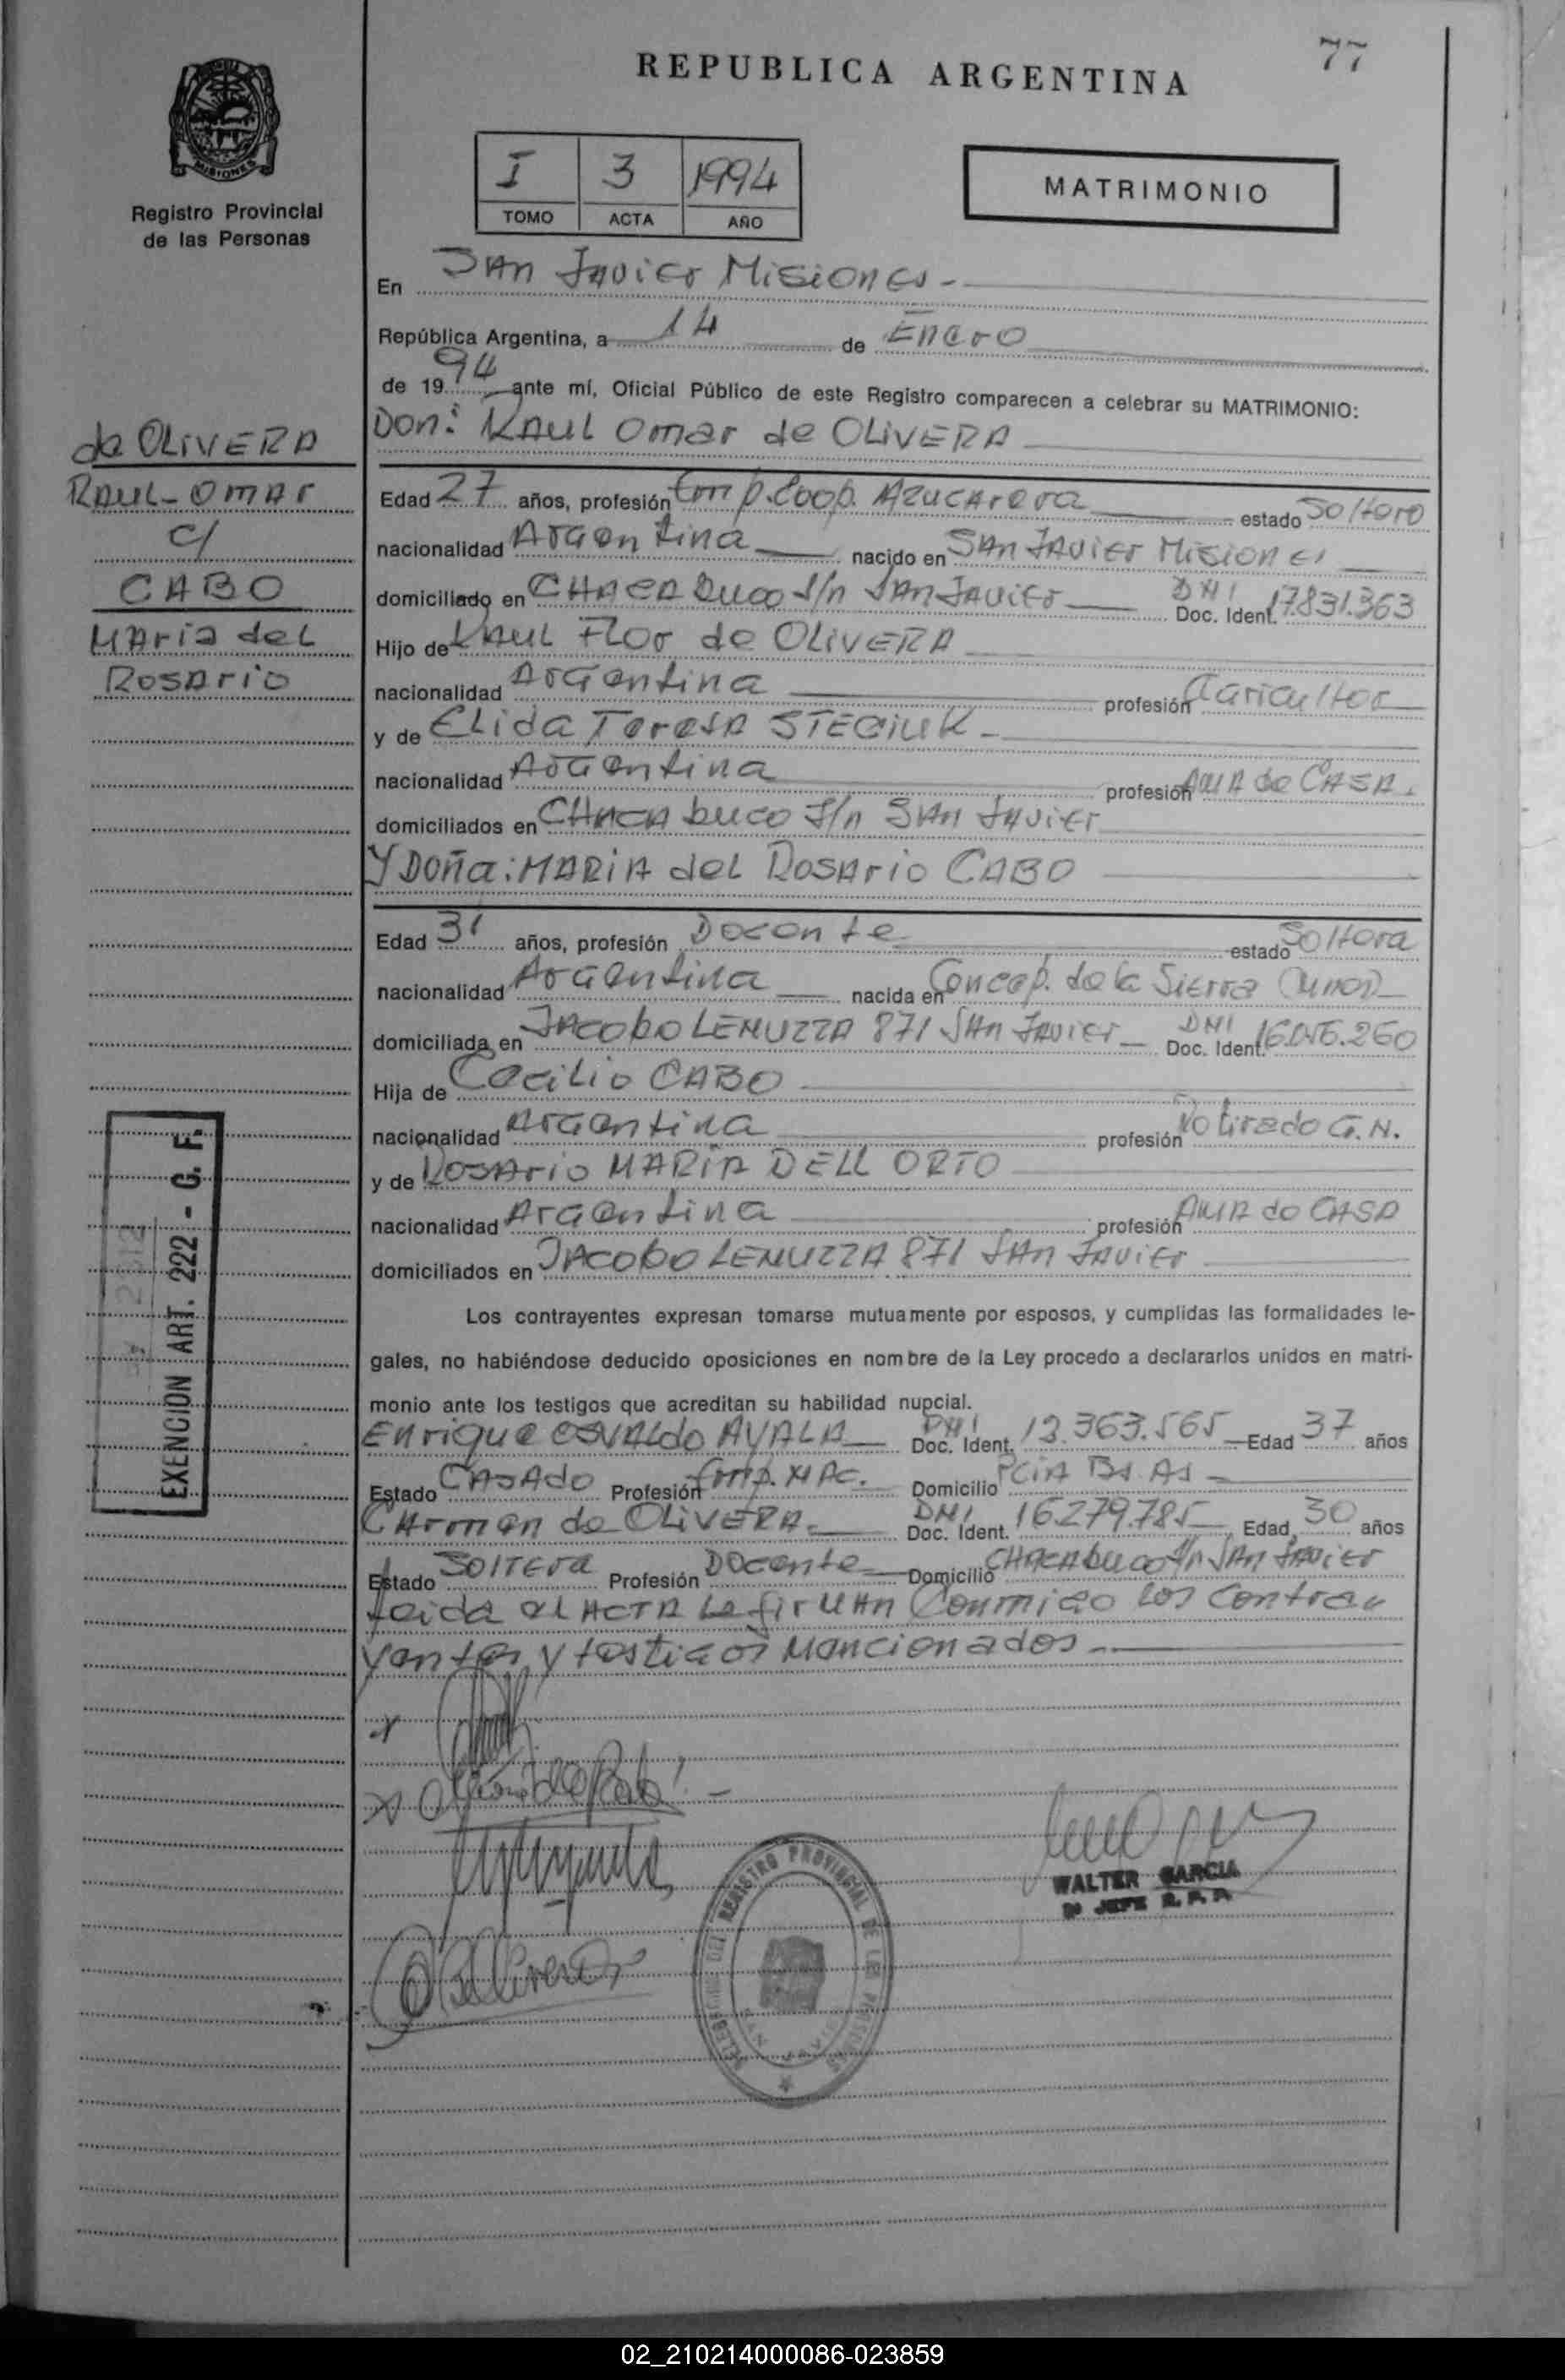 77
REPUBLICA ARGENTINA
MISIONES
Registro Provincial
de las Personas
I 3 1994
TOMO ACTA AÑO
MATRIMONIO
En San Javier Misiones -
República Argentina, a 14 de Enero
de 1994 ante mí, Oficial Público de este Registro comparecen a celebrar su MATRIMONIO:
Don: Raul Omar de OLIVERA
de OLIVERA
Raul-Omar
c/
CABO
Maria del
Rosario
Edad 27 años, profesión Emp. Coop. Azucarera estado Soltero
nacionalidad Argentina nacido en San Javier Misiones
domiciliado en CHACABUCO s/n San Javier DNI Doc. Ident. 17.831.363
Hijo de Raul Flor de OLIVERA
nacionalidad Argentina profesión Agricultor
y de Elida Teresa STECIUK -
nacionalidad Argentina profesión Ama de Casa.
domiciliados en CHACAbuco s/n San Javier
Y Doña: MARIA del Rosario CABO
Edad 31 años, profesión Docente estado Soltera
nacionalidad Argentina nacida en Concep. de la Sierra
domiciliada en Jacobo LENUZZA 871 San Javier DNI Doc. Ident.
Hija de Cecilio CABO
nacionalidad Argentina profesión Retirado G.N.
y de Rosario MARIA DELL ORTO
nacionalidad Argentina profesión Ama de Casa
domiciliados en Jacobo LENUZZA 871 San Javier
Los contrayentes expresan tomarse mutuamente por esposos, y cumplidas las formalidades le-
gales, no habiéndose deducido oposiciones en nombre de la Ley procedo a declararlos unidos en matri-
monio ante los testigos que acreditan su habilidad nupcial.
Enrique OSVALdo AYALA DNI Doc. Ident. 12.363.565 Edad 37 años
Estado Casado Profesión Emp. Domicilio PCIA Bs. As
Carmen de OLIVERA DNI Doc. Ident. 16.279.785 Edad 30 años
Estado Soltera Profesión Docente Domicilio CHACAbuco s/n San Javier
Leida el Acta la firman Conmigo los Contra
yentes y testigos Mencionados -
EXENCION ART. 222 - G. F.
WALTER GARCIA
REGISTRO PROVINCIAL DE LAS PERSONAS
02_210214000086-023859